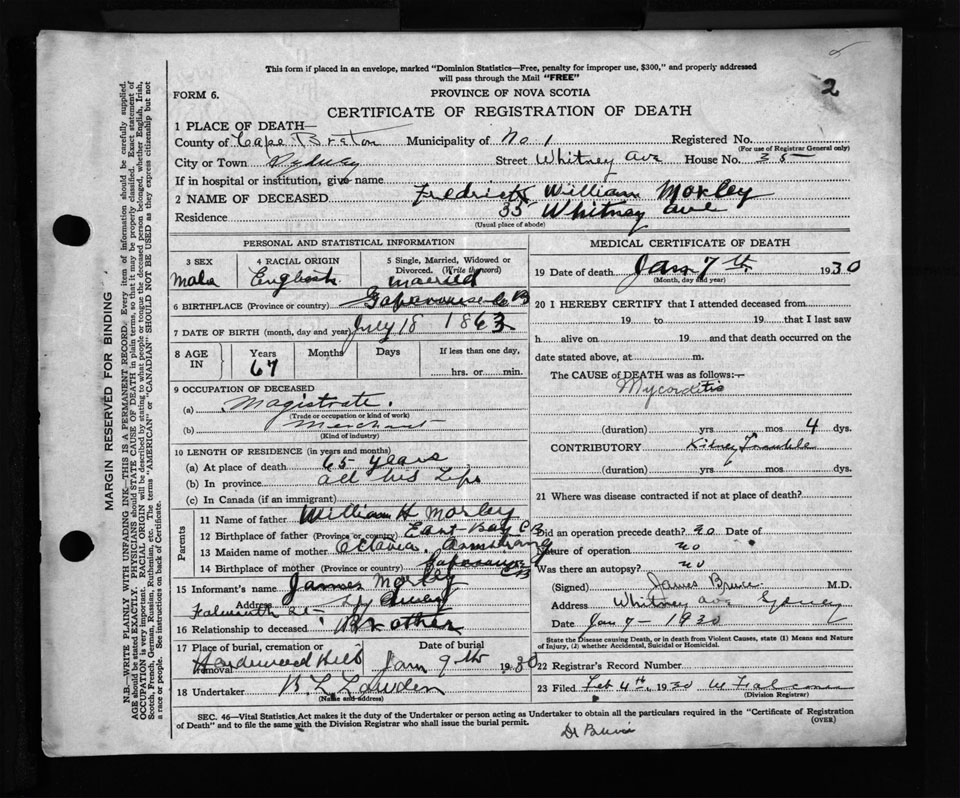 2
This form if placed in an envelope, marked "Dominion Statistics—Free, penalty for improper use, $300," and properly addressed
will pass through the Mail "FREE"
FORM 6.
PROVINCE OF NOVA SCOTIA
CERTIFICATE OF REGISTRATION OF DEATH
1 PLACE OF DEATH—
County of Cape Breton Municipality of No 1 Registered No.
(For use of Registrar General only)
City or Town Sydney Street Whitney Ave House No. 35
If in hospital or institution, give name
2 NAME OF DECEASED Fredrick William Morley
Residence 35 Whitney ave
(Usual place of abode)
PERSONAL AND STATISTICAL INFORMATION
3 SEX 4 RACIAL ORIGIN 5 Single, Married, Widowed or Divorced. (Write the word)
Male English married
6 BIRTHPLACE (Province or country) Gabarouse C B
7 DATE OF BIRTH (month, day and year) July 18 1863
8 AGE IN Years Months Days If less than one day,
67 hrs. or min.
9 OCCUPATION OF DECEASED
(a) Magistrate.
(Trade or occupation or kind of work)
(b) Merchant
(Kind of industry)
10 LENGTH OF RESIDENCE (in years and months)
(a) At place of death 65 years
(b) In province all his Life
(c) In Canada (if an immigrant)
Parents
11 Name of father William H Morley
12 Birthplace of father (Province or country) East Bay C B
13 Maiden name of mother Octavia Armstrong
14 Birthplace of mother (Province or country) Gabarouse C B
15 Informant's name James Morley
Address Falmouth St Sydney
16 Relationship to deceased Brother
17 Place of burial, cremation or removal
Hardwood Hill Jan 9th 1930
18 Undertaker
(Name and address)
MEDICAL CERTIFICATE OF DEATH
19 Date of death Jan 7th 1930
(Month, day and year)
20 I HEREBY CERTIFY that I attended deceased from
19 to 19 that I last saw
h alive on 19 and that death occurred on the
date stated above, at m.
The CAUSE of DEATH was as follows:—
Mycorditis
(duration) yrs. mos. 4 dys.
CONTRIBUTORY Kidney Trouble
(duration) yrs. mos. dys.
21 Where was disease contracted if not at place of death?
Did an operation precede death? no Date of
Nature of operation no
Was there an autopsy? no
(Signed) James Bruce M.D.
Address Whitney ave Sydney
Date Jan 7 - 1930
State the Disease causing Death, or in death from Violent Causes, state (1) Means and Nature of Injury, (2) whether Accidental, Suicidal or Homicidal.
22 Registrar's Record Number
23 Filed Feb 4th, 1930
(Division Registrar)
SEC. 46—Vital Statistics Act makes it the duty of the Undertaker or person acting as Undertaker to obtain all the particulars required in the "Certificate of Registration
of Death" and to file the same with the Division Registrar who shall issue the burial permit. (OVER)
Dr Bruce
MARGIN RESERVED FOR BINDING
N.B.—WRITE PLAINLY WITH UNFADING INK—THIS IS A PERMANENT RECORD. Every item of information should be carefully supplied.
AGE should be stated EXACTLY. PHYSICIANS should STATE CAUSE OF DEATH in plain terms, so that it may be properly classified. Exact statement of
OCCUPATION is very important. RACIAL ORIGIN will be described by stating to what people or tongue the deceased person belonged, whether English, Irish,
Scotch, French, German, Russian, Ruthenian, etc. The terms "AMERICAN" or "CANADIAN" SHOULD NOT BE USED as they express citizenship but not
a race or people. See instructions on back of Certificate.